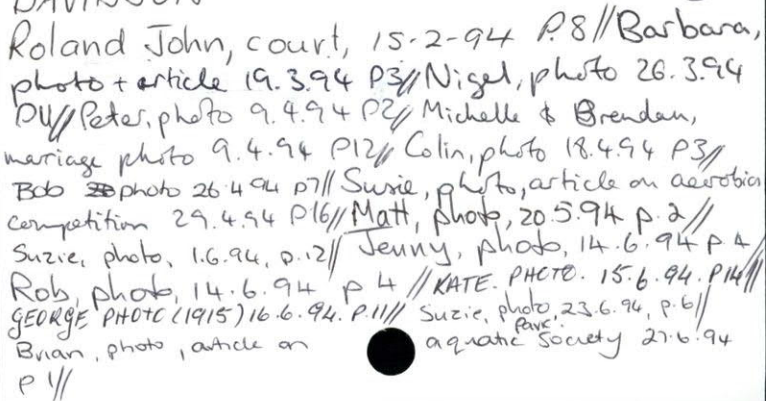 DAVIDSON
Roland John, court, 15-2-94 P.8//Barbara,
photo + article 19.3.94 P3//Nigel, photo 26.3.94
P4//Peter, photo 9.4.94 P2// Michelle & Brendan,
marriage photo 9.4.94 P12// Colin, photo 18.4.94 P3//
Bob photo 26.4.94 p7// Susie, photo, article on aerobics
competition 29.4.94 P16// Matt, photo, 20.5.94 p.2//
Suzie, photo, 1.6.94, p.12// Jenny, photo, 14.6.94 p 4//
Rob, photo, 14.6.94 p 4 // KATE. PHOTO. 15.6.94. P14//
GEORGE PHOTO (1915) 16.6.94. P.11// Suzie, photo, 23.6.94, p.6//
Brian, photo, article on aquatic Society 27.6.94
p 1//